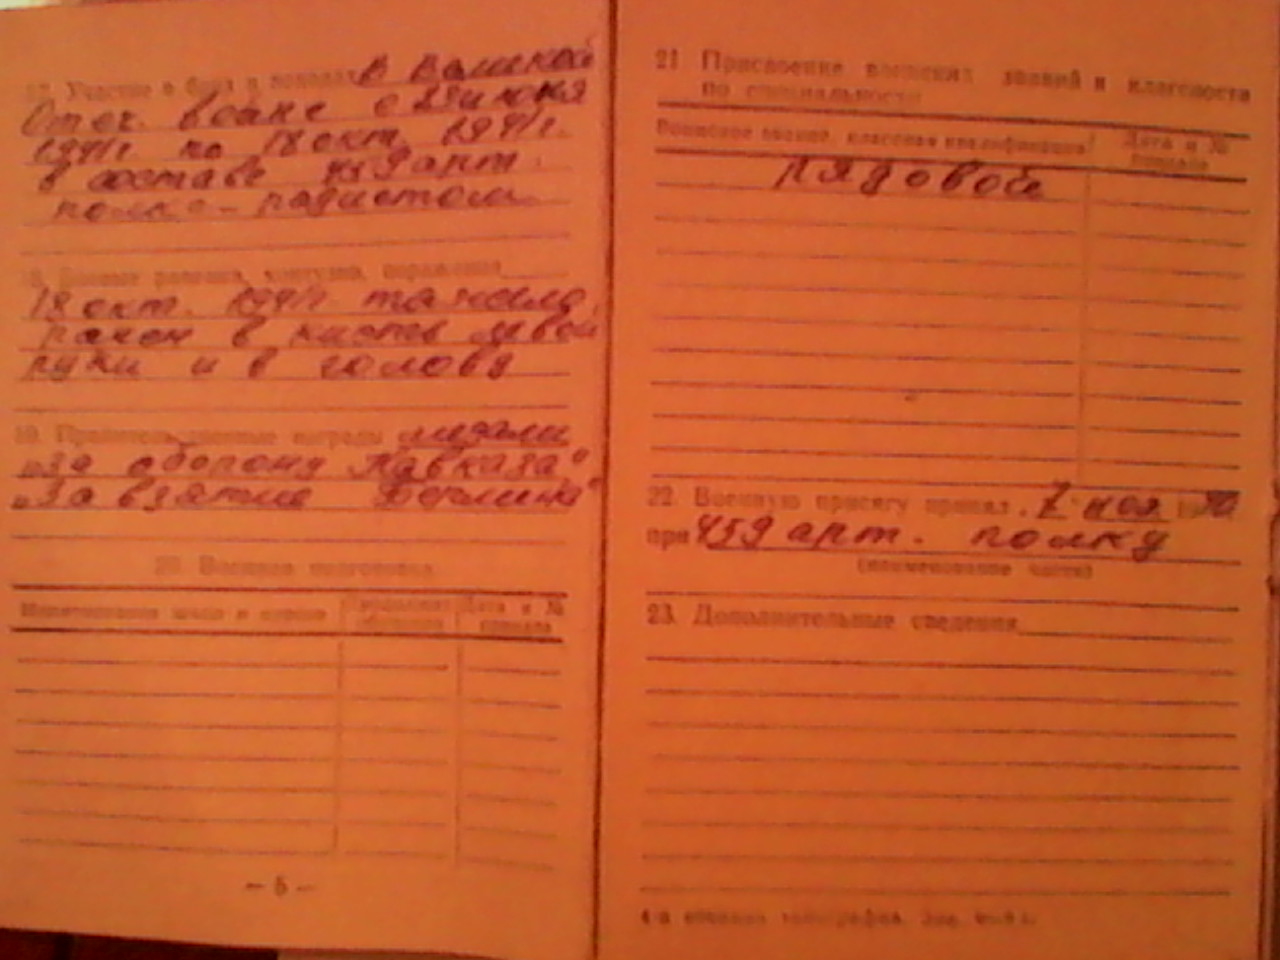 17. Участие в боях и походах в Великой
Отеч. войне с 23 июня
1941г. по 18 окт. 1941г.
в составе 459 арт.
полка – радистом
18. Боевые ранения, контузии, поражения
18 окт. 1941г. тяжело
ранен в кисть левой
руки и в голову
19. Правительственные награды медали
„За оборону Кавказа"
„За взятие Берлина"
20. Военная подготовка
Дата и № приказа
— 5 —
21 Присвоение воинских званий и классности
по специальности
Воинское звание, классная квалификация
Дата и №
приказа
рядовой
22. Военную присягу принял 7 ноя 1940
при 459 арт. полку
(наименование части)
23. Дополнительные сведения
4-я военная типография. Зак.